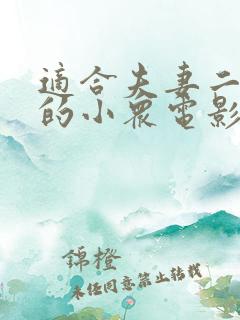 適合夫妻二
的小眾電影
錦橙
未經同意禁止轉載